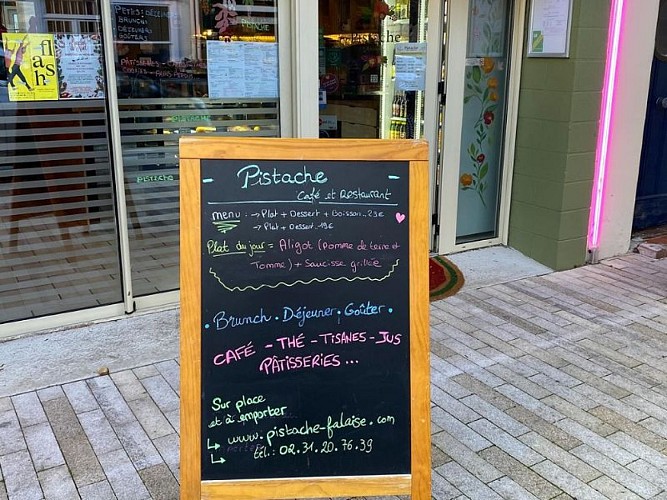 PETITS-DÉJEUNERS
BRUNCH
DÉJEUNERS
GOÛTERS
flash
PISTACHE
Pistache
PISTACHE
Pistache
Café et Restaurant
menu : → Plat + Dessert + Boisson..23€
→ Plat + Dessert..19€
Plat du jour = Aligot (Pomme de terre et
Tomme) + Saucisse grillée
• Brunch • Déjeuner • Goûter •
CAFÉ - THÉ - TISANES - JUS
PÂTISSERIES ...
Sur place
et à emporter
↳ www.pistache-falaise.com
↳ tél. : 02.31.20.76.39